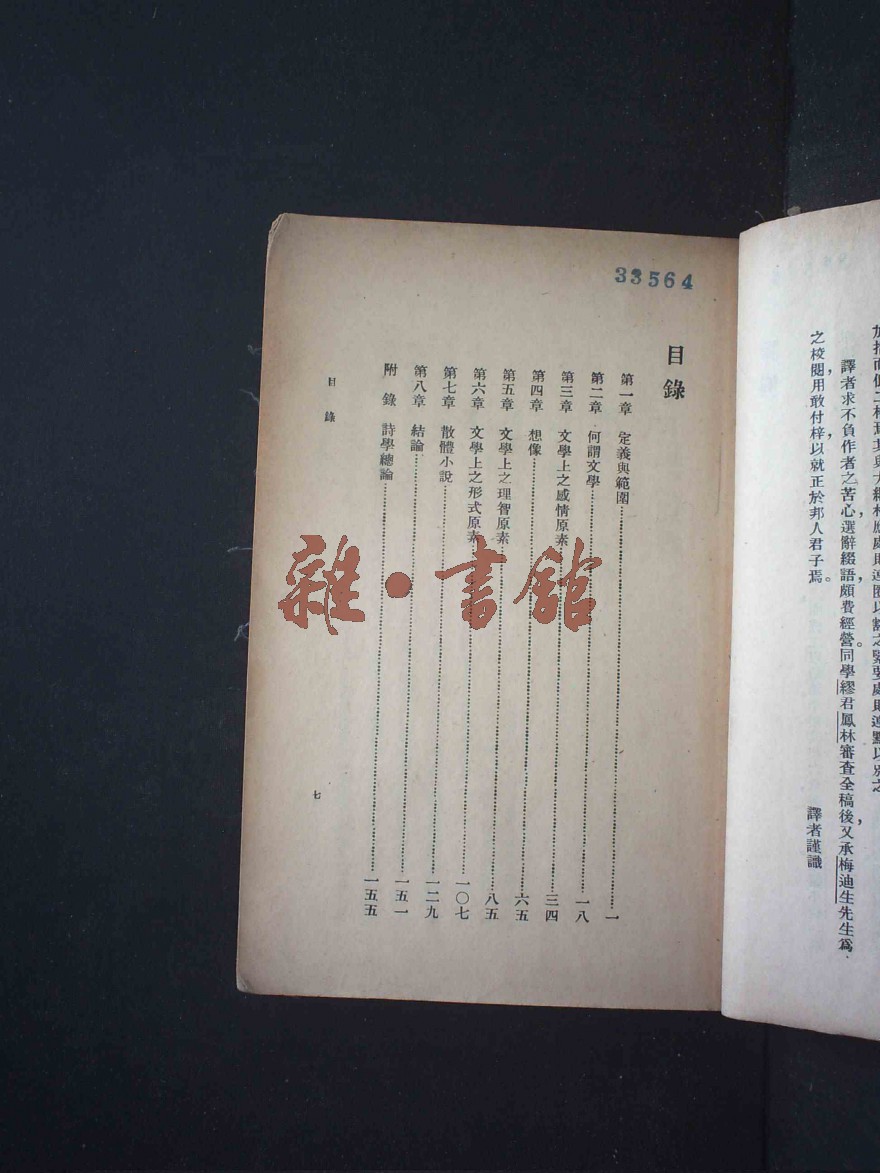 譯者求不負作者之苦心，選辭綴語，頗費經營。同學繆君鳳林審查全稿後，又承梅迪生先生爲
之校閱，用敢付梓，以就正於邦人君子焉。
譯者謹識
33564
目錄
第一章 定義與範圍……一
第二章 何謂文學……一八
第三章 文學上之感情原素……三四
第四章 想像……六五
第五章 文學上之理智原素……八五
第六章 文學上之形式原素……一〇七
第七章 散體小說……一二九
第八章 結論……一五一
附錄 詩學總論……一五五
目錄
七
雜·書館